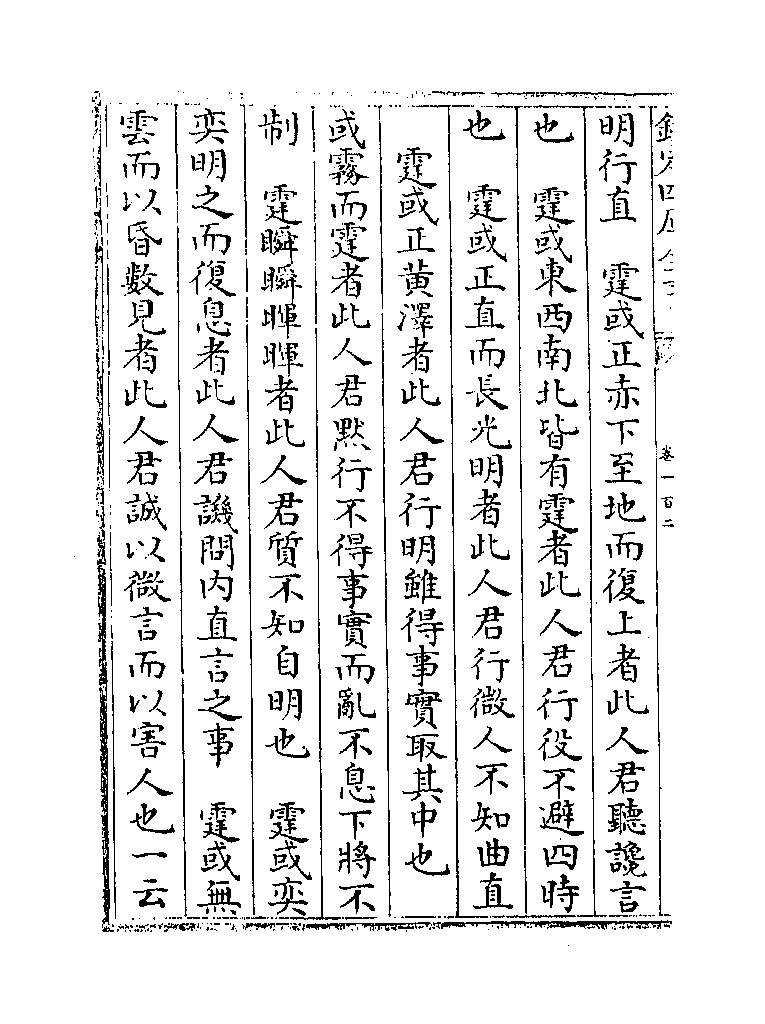 欽定四庫全書
卷一百二
明行直　霆或正赤下至地而復上者此人君聽讒言
也　霆或東西南北皆有霆者此人君行役不避四時
也　霆或正直而長光明者此人君行微人不知曲直
　霆或正黃澤者此人君行明雖得事實取其中也
或霧而霆者此人君默行不得事實而亂不息下將不
制　霆瞬瞬暉暉者此人君質不知自明也　霆或奕
奕明之而復息者此人君譏問内直言之事　霆或無
雲而以昏數見者此人君誠以微言而以害人也一云